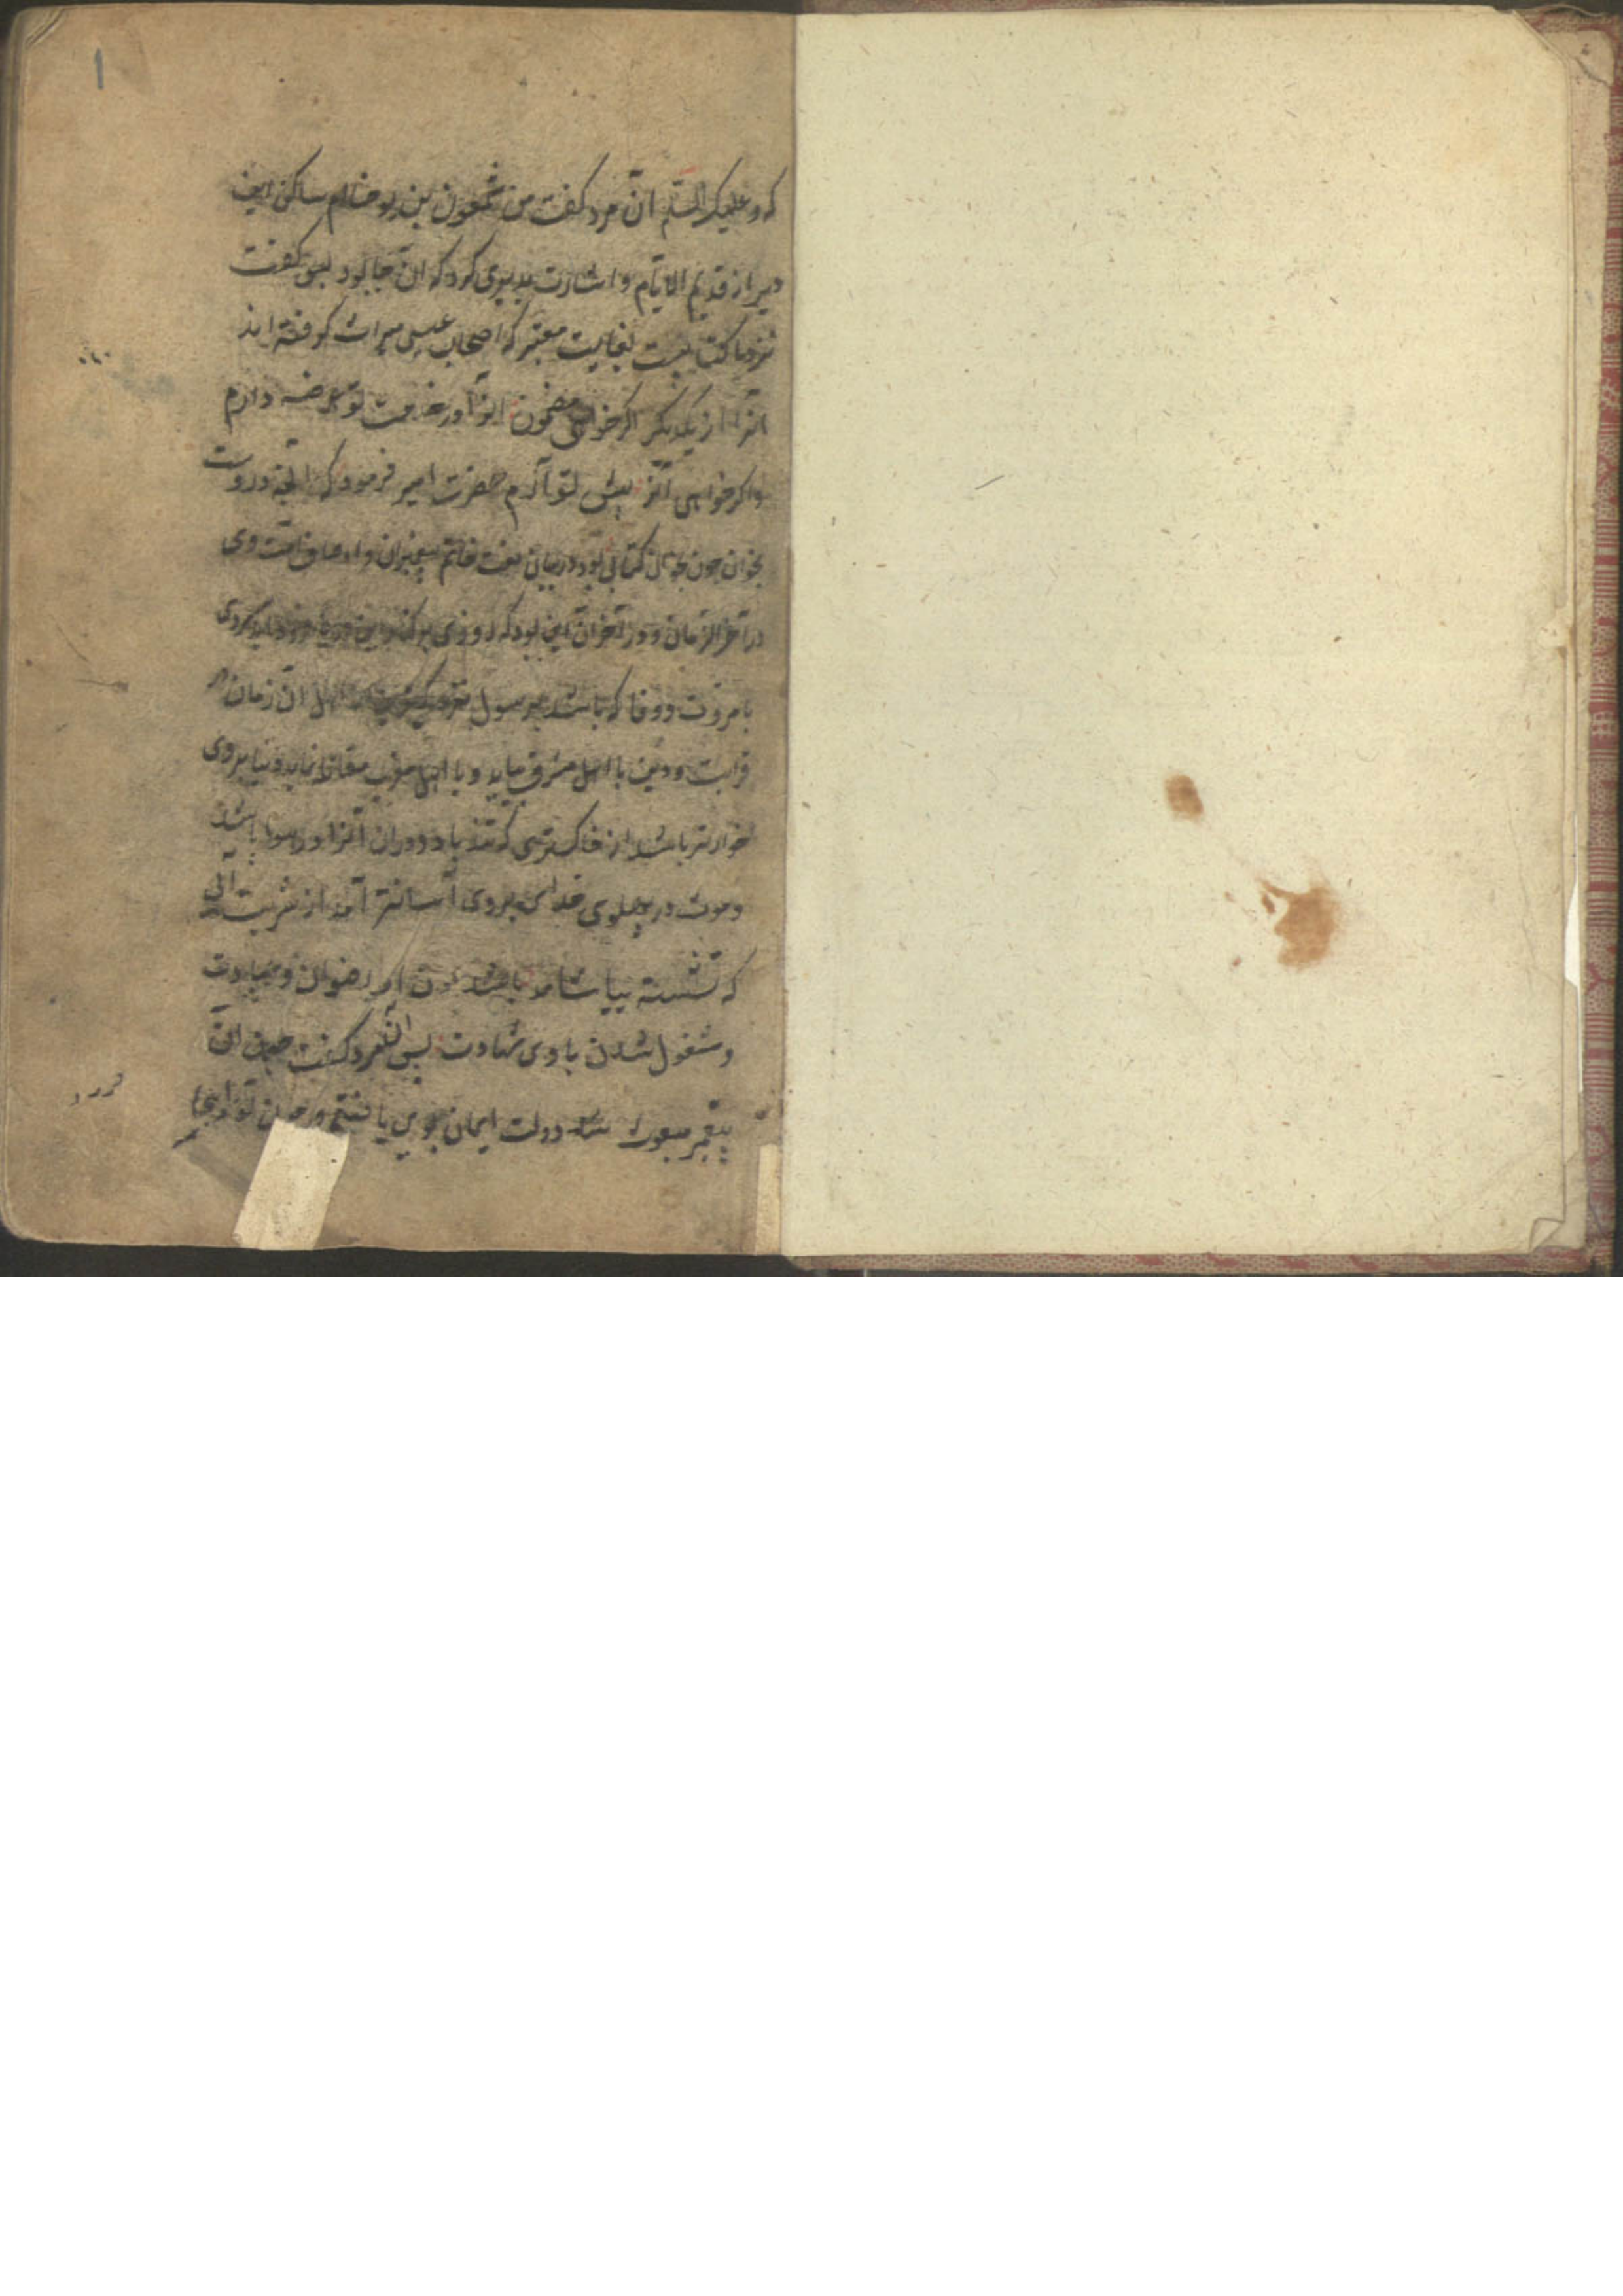 که وعلیک السلم ان مرد کفت من شمعون بن یوحنا ام ساکن این
دیر از قدیم الایام و اشارت بدیری کرد که ان جا بود پس کفت
نزد ما کتابیست بغایت معتبر که اصحاب عیسی میراث کرفته اند
انرا از یکدیکر اکر خواهی مضمون انرا در خدمت تو عرضه دارم
واکر خواهی انرا پیش تو آرم حضرت امیر فرمود که انچه دروست
بخوان چون بخواند کتابی بود در بیان نعت خاتم پیغمبران و اوصاف امت وی
در آخر الزمان و در آخر ان این بود که روزی بر کنار این
با مروت و وفا که باشد برسول اهل ان زمان در
قرابت و دین با اهل مشرق بیاید و با اهل مغرب مقاتله نماید دنیا بر وی
خوارتر باشد از خاکستری که تند باد وران انرا در هوا پاشد
و موت در پهلوی خدای بر وی آسانتر آمد از شربت آبی
که تشنه بیاشامد باشد رضوان و عبادت
و مشغول شدن با وی شهادت پس ان مرد کفت چون ان
پیغمبر مبعوث شد دولت ایمان بوی یافتم و
1